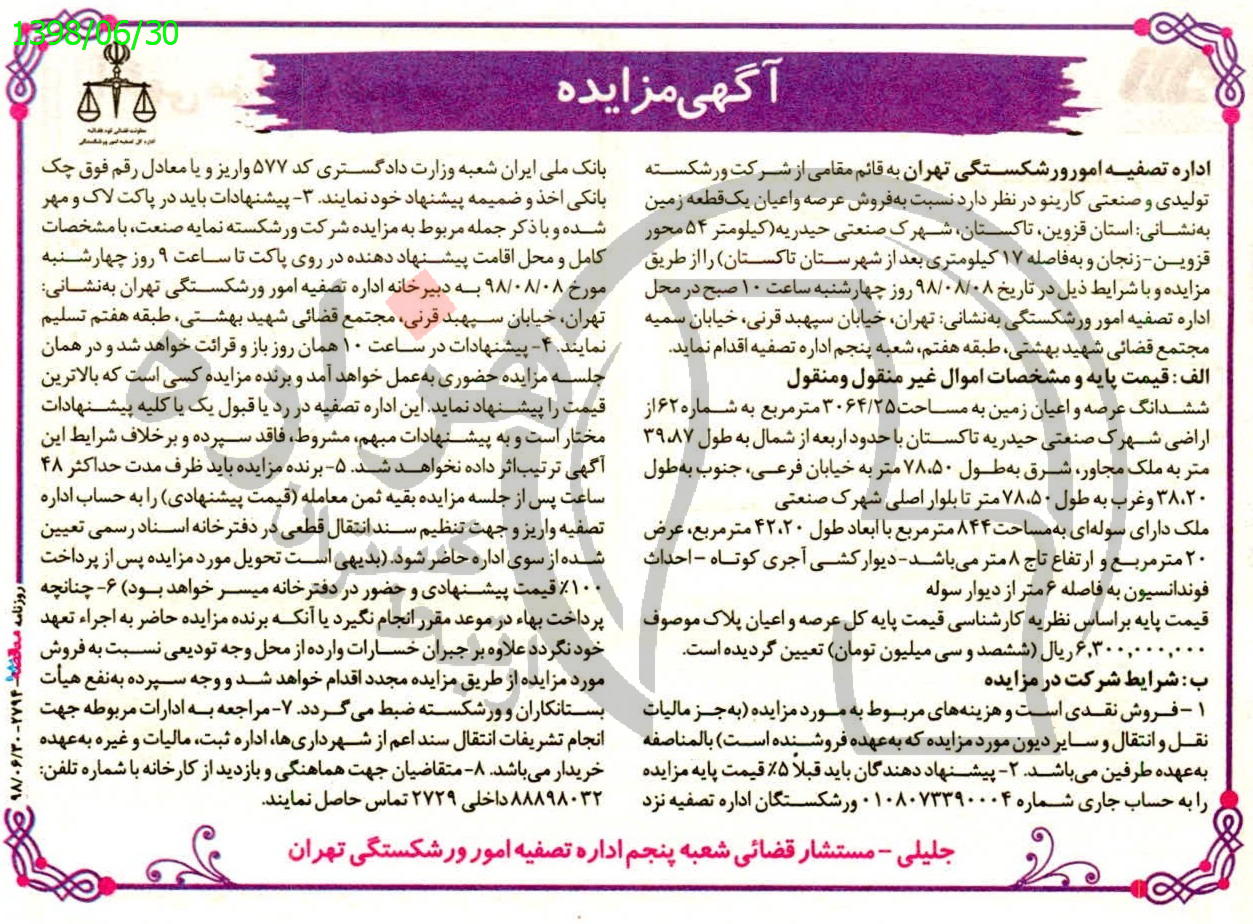 1398/06/30
معاونت قضائی قوه قضائیه
اداره کل تصفیه امور ورشکستگی
آگهی مزایده
اداره تصفیـه امور ورشکسـتگی تهران به قائم مقامی از شـرکت ورشکسته
تولیدی و صنعتی کارینو در نظر دارد نسبت به‌فروش عرصه واعیان یک‌قطعه زمین
به‌نشـانی: استان قزوین، تاکسـتان، شـهرک صنعتی حیدریه(کیلومتر ۵۴ محور
قزویـن-زنجان و به‌فاصله ۱۷ کیلومتری بعد از شهرسـتان تاکسـتان) را از طریق
مزایده و با شرایط ذیل در تاریخ ۹۸/۰۸/۰۸ روز چهارشنبه ساعت ۱۰ صبح در محل
اداره تصفیه امور ورشکستگی به‌نشانی: تهران، خیابان سپهبد قرنی، خیابان سمیه
مجتمع قضائی شهید بهشتی، طبقه هفتم، شعبه پنجم اداره تصفیه اقدام نماید.
الف: قیمت پایه و مشخصات اموال غیر منقول ومنقول
ششـدانگ عرصه و اعیان زمین به مسـاحت۳۰۶۴/۲۵ مترمربع به شماره ۶۲ از
اراضی شـهرک صنعتی حیدریه تاکسـتان با حدود اربعه از شمال به طول ۳۹،۸۷
متر به ملک مجاور، شـرق به‌طـول ۷۸،۵۰ متر به خیابان فرعـی، جنوب به‌طول
۳۸،۲۰ وغرب به طول ۷۸،۵۰ متر تا بلوار اصلی شهرک صنعتی
ملک دارای سوله‌ای به‌مساحت ۸۴۴ مترمربع با ابعاد طول ۴۲،۲۰ مترمربع، عرض
۲۰ مترمربـع و ارتفاع تاج ۸ متر می‌باشـد-دیوارکشـی آجری کوتـاه - احداث
فوندانسیون به فاصله ۶ متر از دیوار سوله
قیمت پایه براساس نظریه کارشناسی قیمت پایه کل عرصه و اعیان پلاک موصوف
۶,۳۰۰,۰۰۰,۰۰۰ ریال (ششصد و سی میلیون تومان) تعیین گردیده است.
ب: شرایط شرکت در مزایده
۱ -فـروش نقـدی اسـت و هزینه‌های مربـوط به مـورد مزایده (به‌جـز مالیات
نقـل و انتقال و سـایر دیون مورد مزایده که به‌عهده فروشـنده اسـت) بالمناصفه
به‌عهده طرفین می‌باشـد. ۲- پیشـنهاد دهندگان باید قبلاً ۵٪ قیمت پایه مزایده
را به حساب جاری شماره ۰۱۰۸۰۷۳۳۹۰۰۰۴ ورشکسـتگان اداره تصفیه نزد
بانک ملی ایران شعبه وزارت دادگسـتری کد ۵۷۷ واریز و یا معادل رقم فوق چک
بانکی اخذ و ضمیمه پیشنهاد خود نمایند. ۳- پیشنهادات باید در پاکت لاک و مهر
شـده و با ذکر جمله مربوط به مزایده شرکت ورشکسته نمایه صنعت، با مشخصات
کامل و محل اقامت پیشـنهاد دهنده در روی پاکت تا سـاعت ۹ روز چهارشـنبه
مورخ ۹۸/۰۸/۰۸ بـه دبیرخانه اداره تصفیه امور ورشکسـتگی تهران به‌نشـانی:
تهران، خیابان سـپهبد قرنی، مجتمع قضائی شهید بهشـتی، طبقه هفتم تسلیم
نمایند. ۴- پیشنهادات در سـاعت ۱۰ همان روز باز و قرائت خواهد شد و در همان
جلسـه مزایده حضوری به‌عمل خواهد آمد و برنده مزایده کسی است که بالاترین
قیمت را پیشـنهاد نماید. این اداره تصفیه در رد یا قبول یک یا کلیه پیشـنهادات
مختار است و به پیشـنهادات مبهم، مشروط، فاقد سـپرده و برخلاف شرایط این
آگهی ترتیب‌اثر داده نخواهـد شـد. ۵- برنده مزایده باید ظرف مدت حداکثر ۴۸
ساعت پس از جلسه مزایده بقیه ثمن معامله (قیمت پیشنهادی) را به حساب اداره
تصفیه واریز و جهت تنظیم سـند انتقال قطعی در دفترخانه اسـناد رسمی تعیین
شـده از سوی اداره حاضر شود. (بدیهی است تحویل مورد مزایده پس از پرداخت
۱۰۰٪ قیمت پیشـنهادی و حضور در دفترخانه میسـر خواهد بـود) ۶- چنانچه
پرداخت بهاء در موعد مقرر انجام نگیرد یا آنکـه برنده مزایده حاضر به اجراء تعهد
خود نگردد علاوه بر جبران خسـارات وارده از محل وجه تودیعی نسـبت به فروش
مورد مزایده از طریق مزایده مجدد اقدام خواهد شـد و وجه سـپرده به‌نفع هیأت
بسـتانکاران و ورشکسـته ضبط می‌گـردد. ۷- مراجعه بـه ادارات مربوطه جهت
انجام تشریفات انتقال سند اعم از شـهرداری‌ها، اداره ثبت، مالیات و غیره به‌عهده
خریدار می‌باشد. ۸- متقاضیان جهت هماهنگی و بازدید از کارخانه با شماره تلفن:
۸۸۸۹۸۰۳۲ داخلی ۲۷۲۹ تماس حاصل نمایند.
جلیلی - مستشار قضائی شعبه پنجم اداره تصفیه امور ورشکستگی تهران
روزنامه مناقصه - ۲۷۹۴ - ۹۸/۰۶/۳۰
هزاره